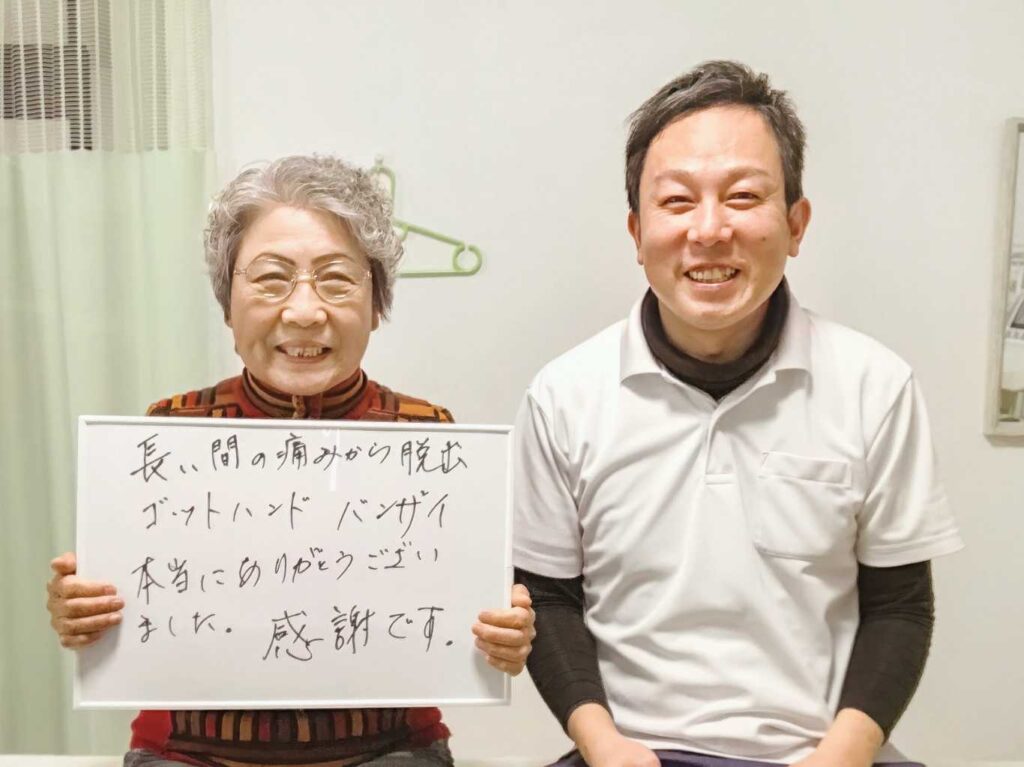 長い間の痛みから脱出
ゴットハンド バンザイ
本当にありがとうござい
ました。感謝です。